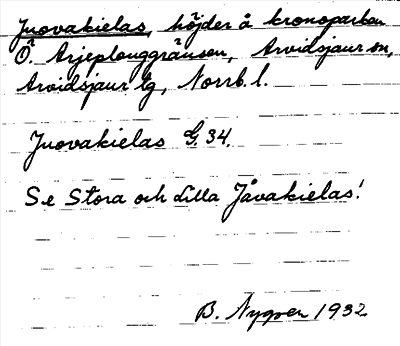 Juovakielas, höjder å kronoparken
Ö. Arjeplouggränsen, Arvidsjaur sn,
Arvidsjaur tg, Norrb. l.
Juovakielas G. 34.
Se Stora och Lilla Jåvakielas!
B. Nygren 1932